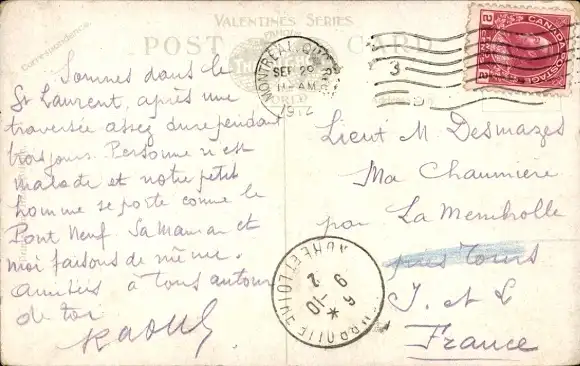 VALENTINE'S SERIES
POST CARD
Correspondence.
MONTREAL, QUE.
SEP 29
AM
1912
CANADA POSTAGE
2
2
3
Sommes dans le
St Laurent, après une
traversée assez dure pendant
trois jours. Personne n'est
malade et notre petit
homme se porte comme le
Pont Neuf. Sa Maman et
moi faisons de même.
Amitiés à tous autour
de toi
Raoul
Lieut M. Desmazes
Ma Chaumière
par La Membrolle
près Tours
I. et L
France
INDRE ET LOIRE
9 -10
12